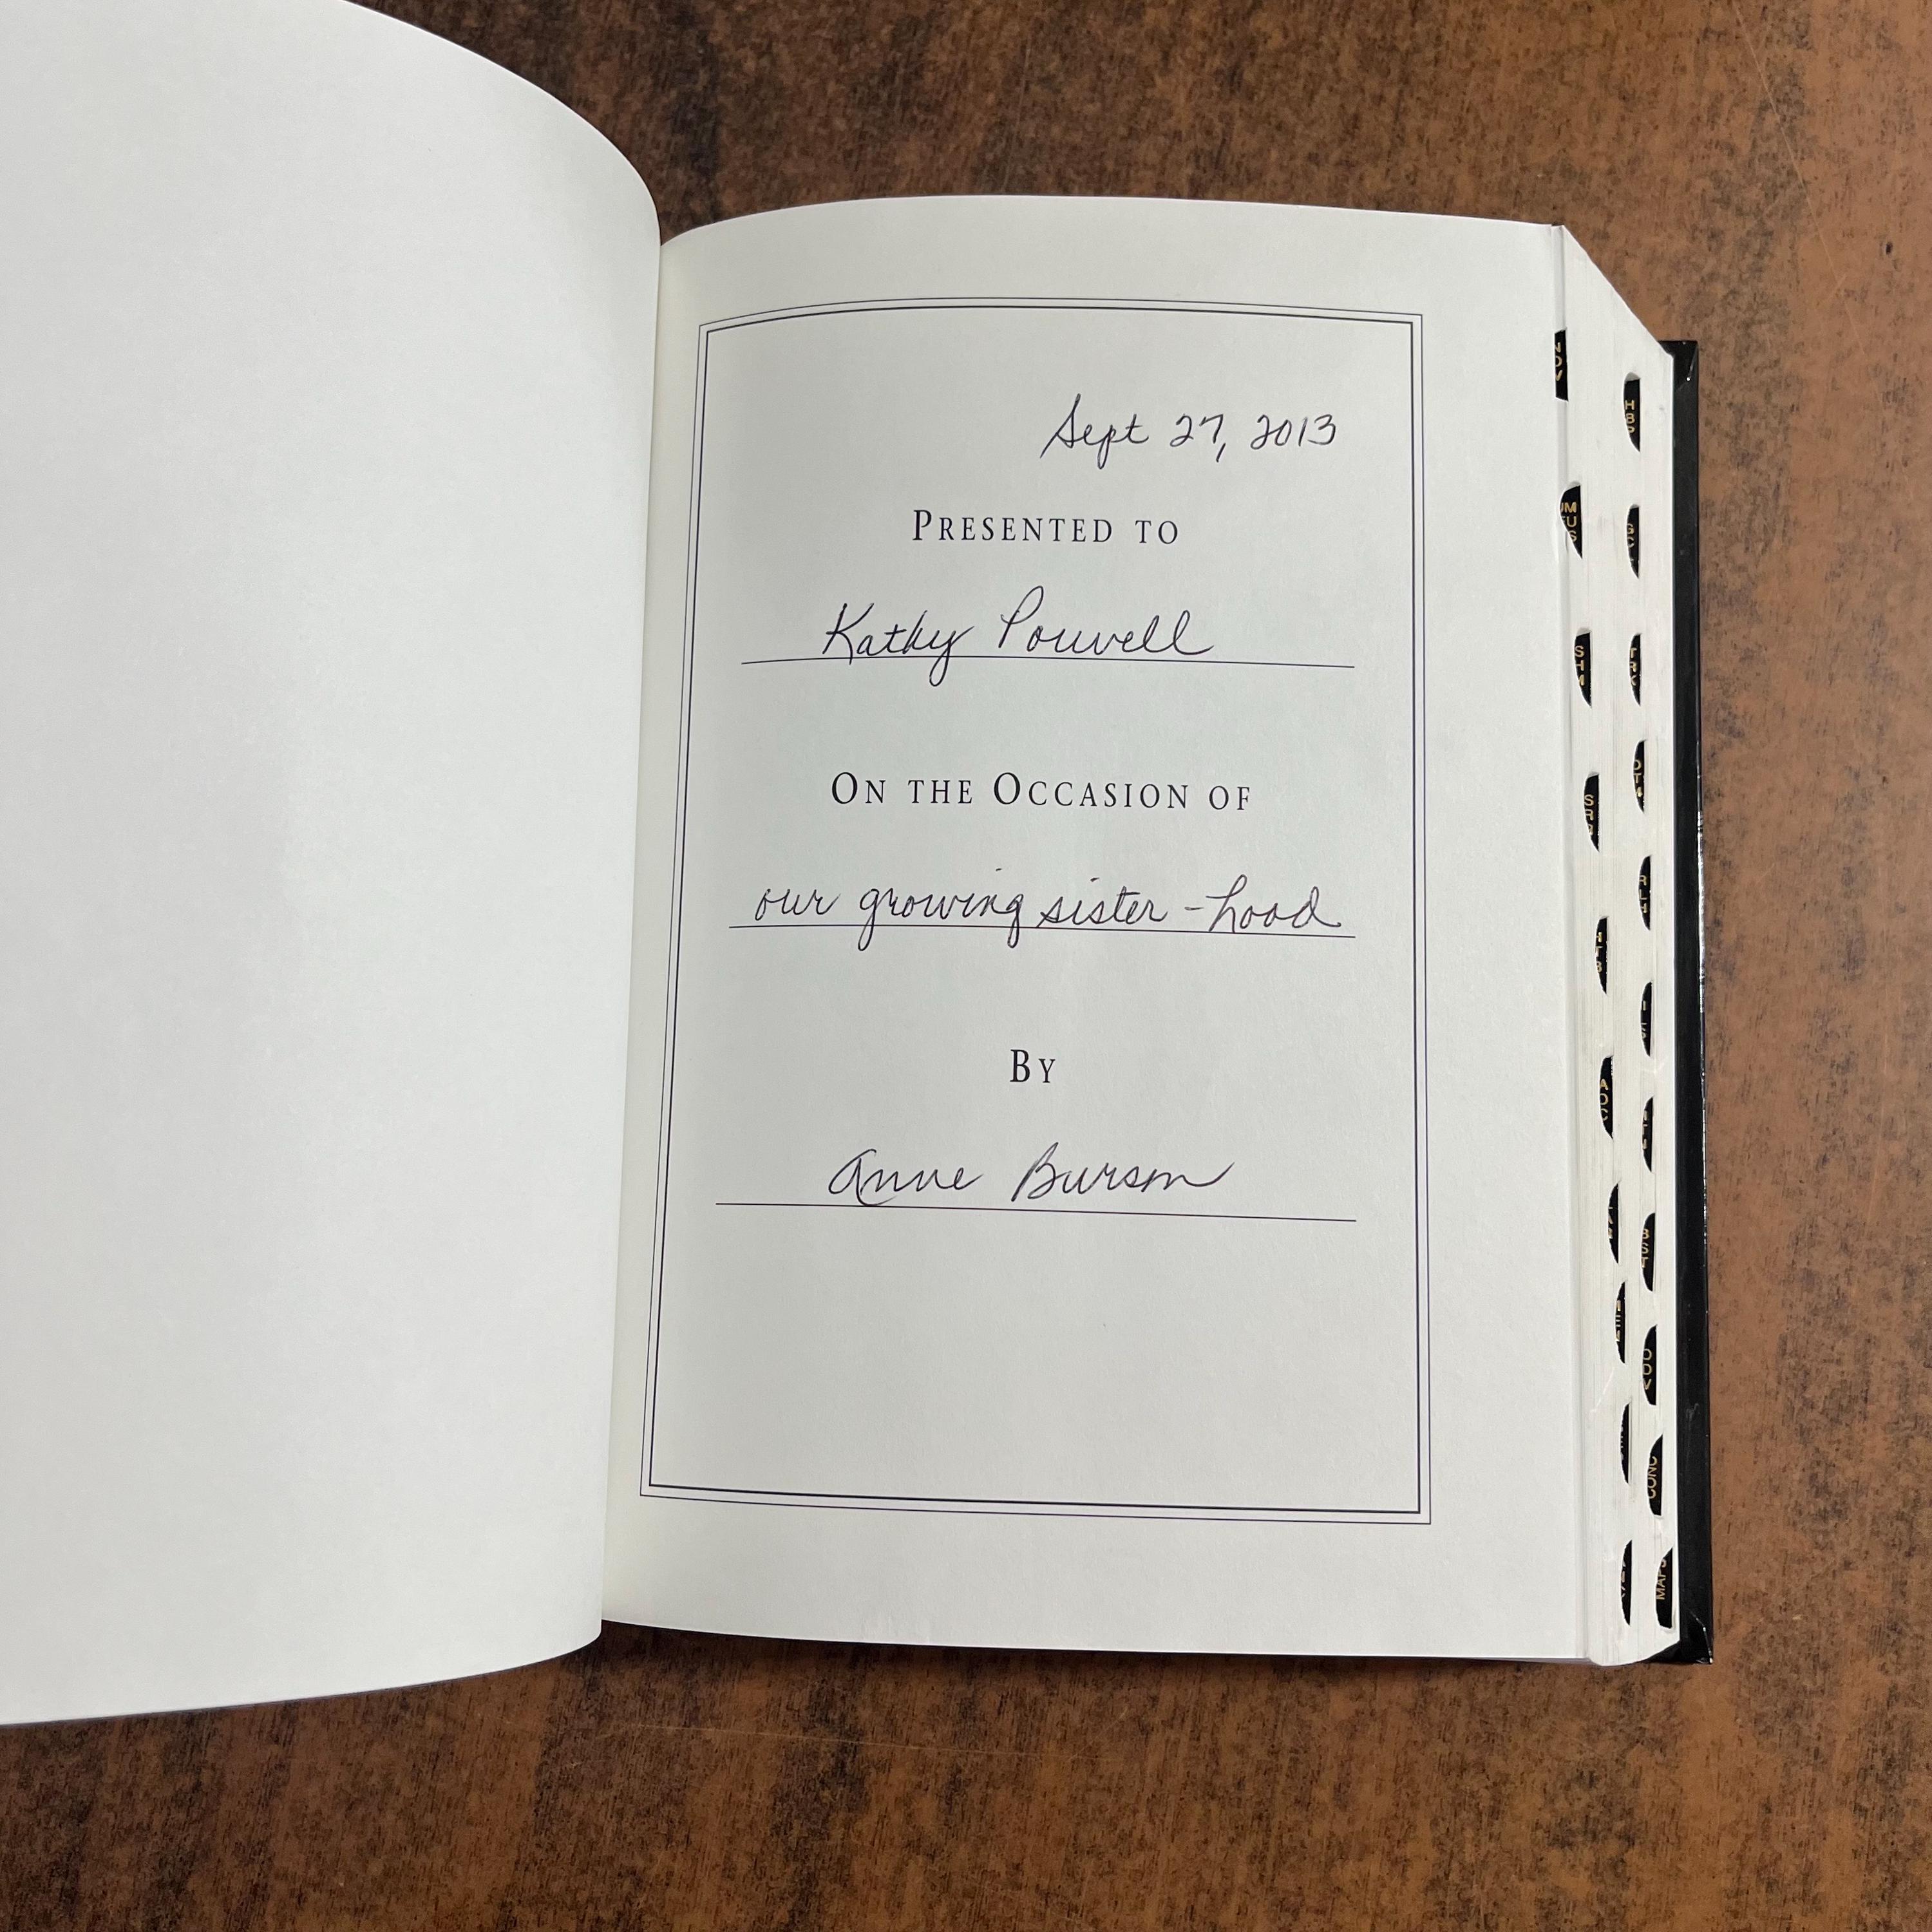 Sept 27, 2013
PRESENTED TO
Kathy Powell
ON THE OCCASION OF
our growing sister-hood
BY
Anne Burson
CONC
MAPS